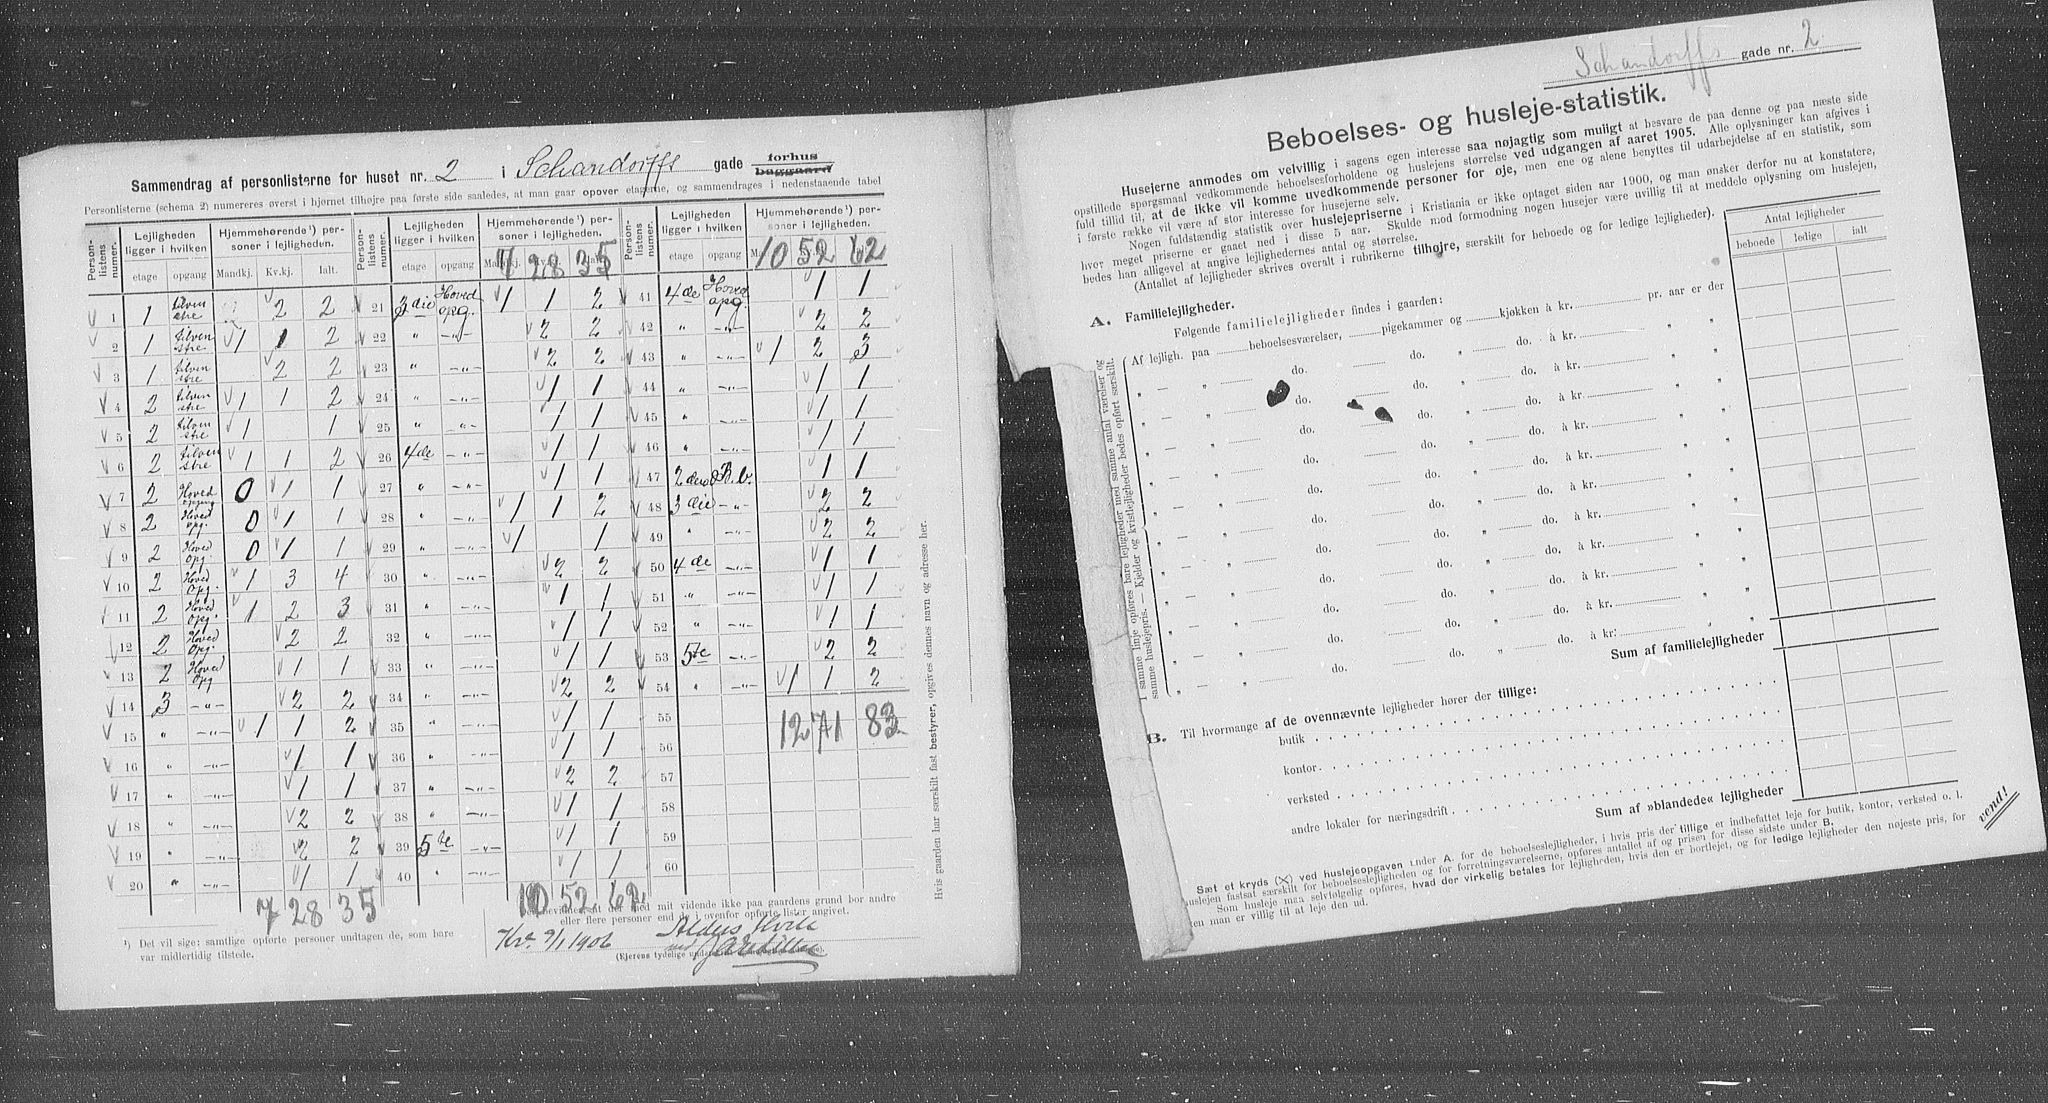 Sammendrag af personlisterne for huset nr. 2 i Schandorffs gade forhus baggaard
Personlisterne (schema 2) numereres øverst i hjørnet tilhøjre paa første side saaledes, at man gaar opover etagerne, og sammendrages i nedenstaaende tabel
Person-listens numer. Lejligheden ligger i hvilken etage opgang Hjemmehørende¹) personer i lejligheden. Mandkj. Kv.kj. Ialt.
1 1 tilvenstre 2 2
2 1 tilvenstre 1 1 2
3 1 tilvenstre 2 2
4 2 tilvenstre 1 1 2
5 2 tilvenstre 1 1
6 2 tilvenstre 1 1 2
7 2 Hoved opgang 0 1 1
8 2 Hoved opg. 0 1 1
9 2 Hoved opg. 0 1 1
10 2 Hoved opg. 1 3 4
11 2 Hoved opg. 1 2 3
12 2 Hoved opg. 2 2
13 2 Hoved opg 1 1
14 3 -„- 2 2
15 „ -„- 1 1 2
16 „ -„- 1 1
17 „ -„- 1 1
18 „ -„- 2 2
19 „ -„- 2 2
20 „ -„- 1 1
7 28 35
Person-listens numer. Lejligheden ligger i hvilken etage opgang Hjemmehørende¹) personer i lejligheden.
7 28 35
21 3die Hoved opg. 1 1 2
22 „ -„- 2 2
23 „ -„- 2 2
24 „ -„- 1 1
25 „ -„- 1 1
26 4de -„- 1 1
27 „ -„- 1 1
28 „ -„- 1 1 2
29 „ -„- 1 1
30 „ -„- 2 2
31 „ -„- 1 1
32 „ -„- 1 1
33 „ -„- 1 1
34 „ -„- 2 2
35 „ -„- 1 1
36 „ -„- 1 1
37 „ -„- 2 2
38 „ -„- 1 1
39 5te -„- 1 1
40 „ -„- 1 1
10 52 62
Person-listens numer. Lejligheden ligger i hvilken etage opgang Hjemmehørende¹) personer i lejligheden.
10 52 62
41 4de Hoved opg. 1 1
42 „ -„- 2 2
43 „ -„- 1 2 3
44 „ -„- 1 1
45 „ 1 1
46 „ -„- 1 1
47 2den B.b. 1 1
48 3die -„- 2 2
49 „ -„- 2 2
50 4de -„- 1 1
51 „ -„- 1 1
52 „ -„- 1 1
53 5te -„- 2 2
54 „ -„- 1 1 2
55 12 71 83
56
57
58
59
60
¹) Det vil sige: samtlige opførte personer undtagen de, som bare
var midlertidig tilstede.
at der med mit vidende ikke paa gaardens grund bor andre
eller flere personer end de i ovenfor opførte lister angivet.
Kra. 9/1 1906 Aldus Hvile
ved
(Ejerens tydelige
Hvis gaarden har særskilt fast bestyrer, opgives dennes navn og adresse her.
Schandorffs gade nr. 2
Beboelses- og husleje-statistik.
Husejerne anmodes om velvillig i sagens egen interesse saa nøjagtig som muligt at besvare de paa denne og paa næste side
opstillede spørgsmaal vedkommende beboelsesforholdene og huslejens størrelse ved udgangen af aaret 1905. Alle oplysninger kan afgives i
fuld tillid til, at de ikke vil komme uvedkommende personer for øje, men ene og alene benyttes til udarbejdelse af en statistik, som
i første række vil være af stor interesse for husejerne selv.
Nogen fuldstændig statistik over huslejepriserne i Kristiania er ikke optaget siden aar 1900, og man ønsker derfor nu at konstatere,
hvor meget priserne er gaaet ned i disse 5 aar. Skulde mod formodning nogen husejer være uvillig til at meddele oplysning om huslejen,
bedes han alligevel at angive lejlighedernes antal og størrelse.
(Antallet af lejligheder skrives overalt i rubrikerne tilhøjre, særskilt for beboede og for ledige lejligheder).
Antal lejligheder
beboede ledige ialt
A. Familielejligheder.
Følgende familielejligheder findes i gaarden:
Af lejligh. paa beboelsesværelser, pigekammer og kjøkken à kr. pr. aar er der
— „ do. do. „ do. à kr. „ „
— „ do. do. „ do. à kr. „ „
— „ do. do. „ do. à kr. „ „
— „ do. do. „ do. à kr. „ „
— „ do. do. „ do. à kr. „ „
— „ do. do. „ do. à kr. „ „
— „ do. do. „ do. à kr. „ „
— „ do. do. „ do. à kr. „ „
— „ do. do. „ do. à kr. „ „
— „ do. do. „ do. à kr. „ „
— „ do. do. „ do. à kr. „ „
I samme linje opføres bare lejligheder med samme antal værelser og
samme huslejepris. — Kjelder og kvistlejligheder bedes opført særskilt.
Sum af familielejligheder
B. Til hvormange af de ovennævnte lejligheder hører der tillige:
butik
kontor
verksted
andre lokaler for næringsdrift
Sum af »blandede« lejligheder
Sæt et kryds (×) ved huslejeopgaven under A. for de beboelseslejligheder, i hvis pris der tillige er indbefattet leje for butik, kontor, verksted o. l.
huslejen fastsat særskilt for beboelseslejligheden og for forretningsværelserne, opføres antallet af og prisen for disse sidste under B.
Som husleje maa selvfølgelig opføres, hvad der virkelig betales for lejligheden, hvis den er bortlejet, og for ledige lejligheder den nøjeste pris, for
en man er villig til at leje den ud.
vend!